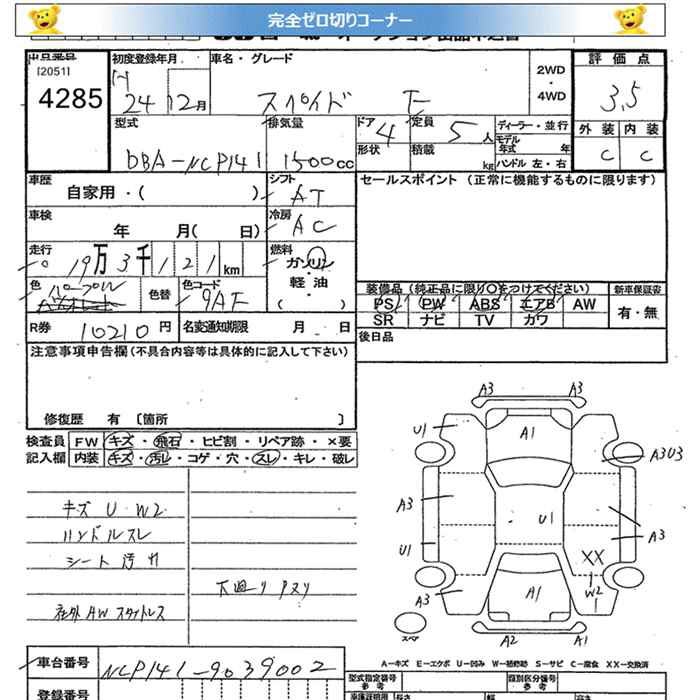 完全ゼロ切りコーナー
出品番号
[2051]
4285
初度登録年月
H
24 12月
車名・グレード
スペイド F
2WD
・
4WD
評価点
3.5
外装 内装
C C
型式
DBA-NCP141
排気量
1500cc
ドア 4
形状
定員 5人
積載 kg
ディーラー・並行
モデル
年式 年
ハンドル 左・右
車歴
自家用・( )
シフト
AT
車検
年 月( 日)
冷房
AC
走行
19万3千121km
燃料
ガソリン
・
軽油
( )
色
パープル
色替
色コード
9AF
R券 10210円
名変通知期限 月 日
セールスポイント (正常に機能するものに限ります)
装備品 (純正品に限り〇をつけてください)
PS PW ABS エアB AW
SR ナビ TV カワ
新車保証書
有・無
後日品
注意事項申告欄(不具合内容等は具体的に記入して下さい)
修復歴 有 [箇所 ]
検査員
記入欄
FW キズ・飛石・ヒビ割・リペア跡・×要
内装 キズ・汚レ・コゲ・穴・スレ・キレ・破レ
キズ U W2
ハンドルスレ
シート汚レ
下廻りサビ
社外AW スタッドレス
A3 A3
U1 A1
A3U3
A3
U1
U1
A3
XX
W2
A3 A1
1
スペア
A2 A1
A-キズ E-エクボ U-凹み W-補修跡 S-サビ C-腐食 XX-交換済
車台番号 NCP141-9039002
型式指定番号
参考
類別区分番号
参考
登録番号
車庫証明用
長さ
幅
高さ